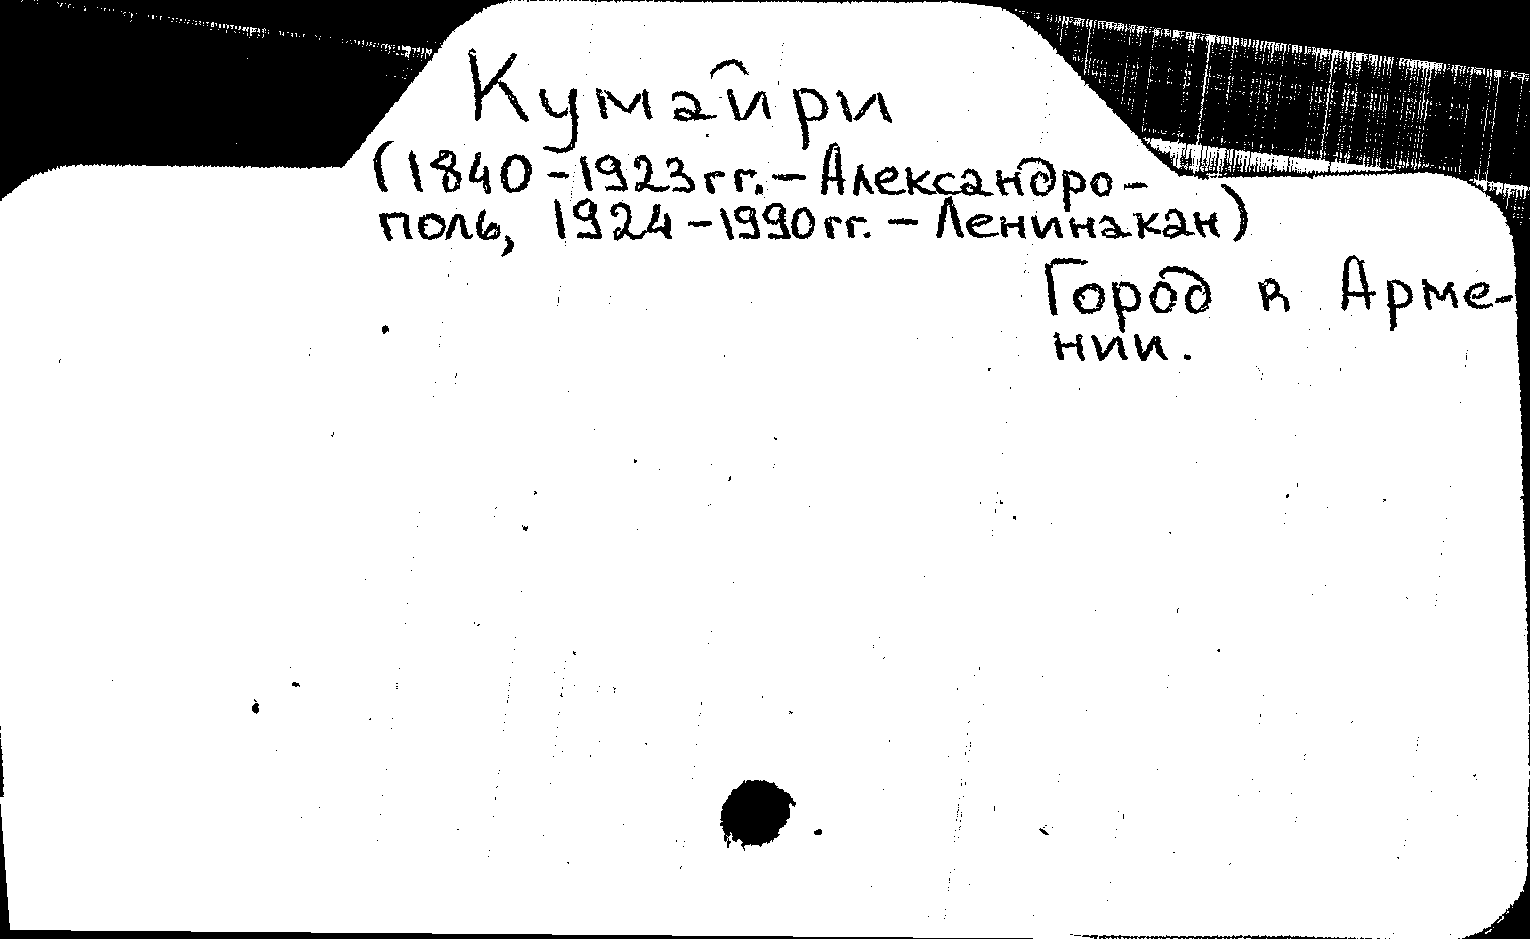 Кумайри
(1840-1923гг.-Александро-
поль, 1924-1990гг.-Ленинакан)
Город в Арме-
нии.